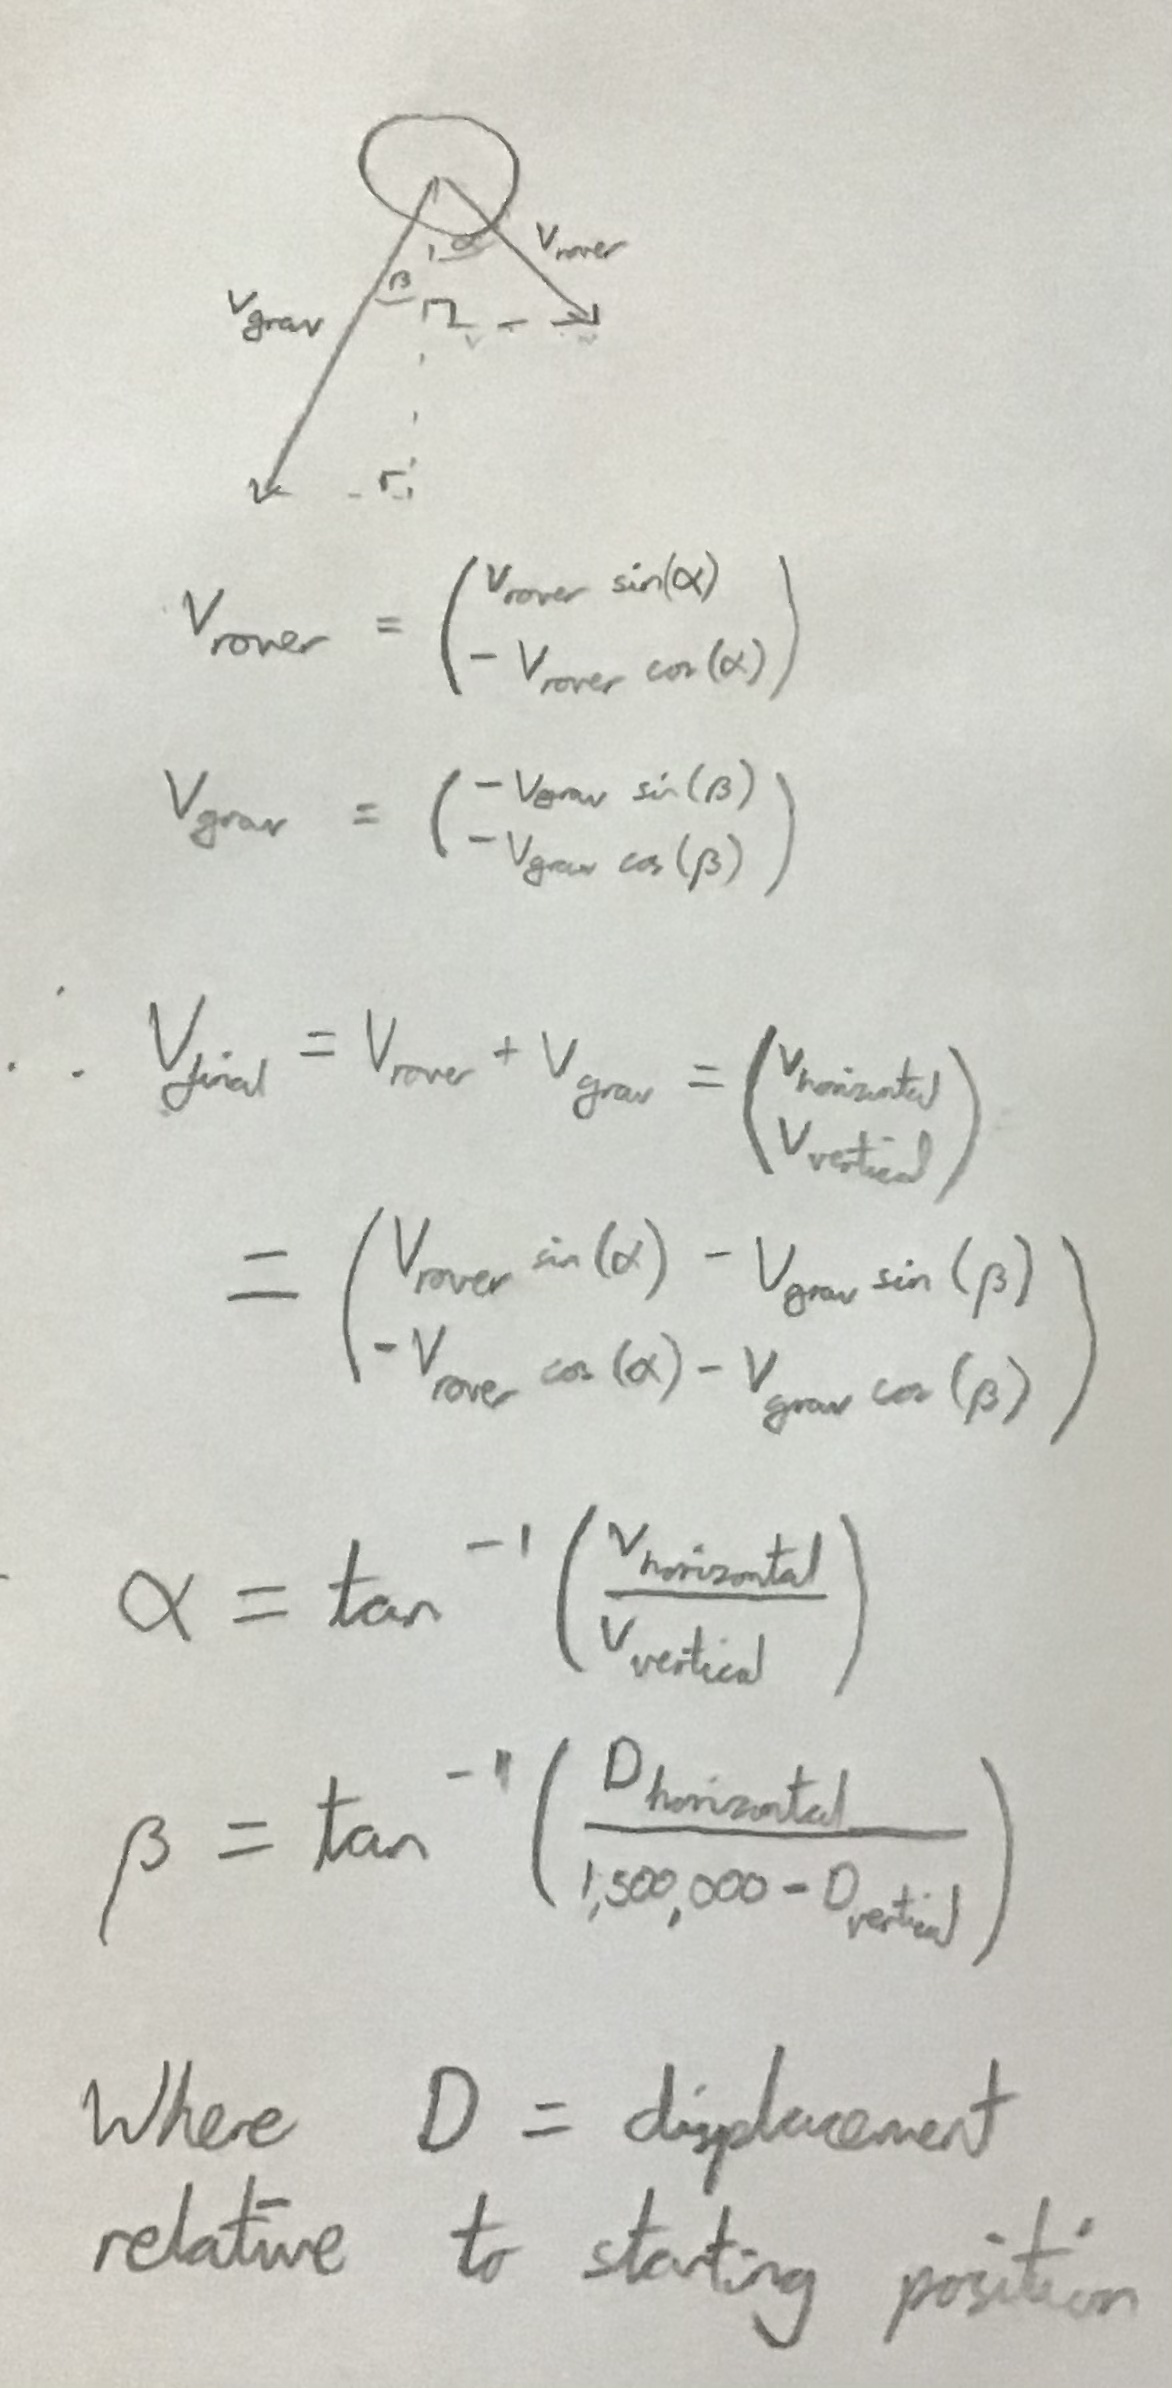 α
V rover
β
V grav
V rover = ( V rover sin(α)
- V rover cos(α) )
V grav = ( - V grav sin(β)
- V grav cos(β) )
∴ V final = V rover + V grav = ( V horizontal
V vertical )
= ( V rover sin(α) - V grav sin(β)
- V rover cos(α) - V grav cos(β) )
α = tan⁻¹ ( V horizontal
V vertical )
β = tan⁻¹ ( D horizontal
1,500,000 - D vertical )
Where D = displacement
relative to starting position